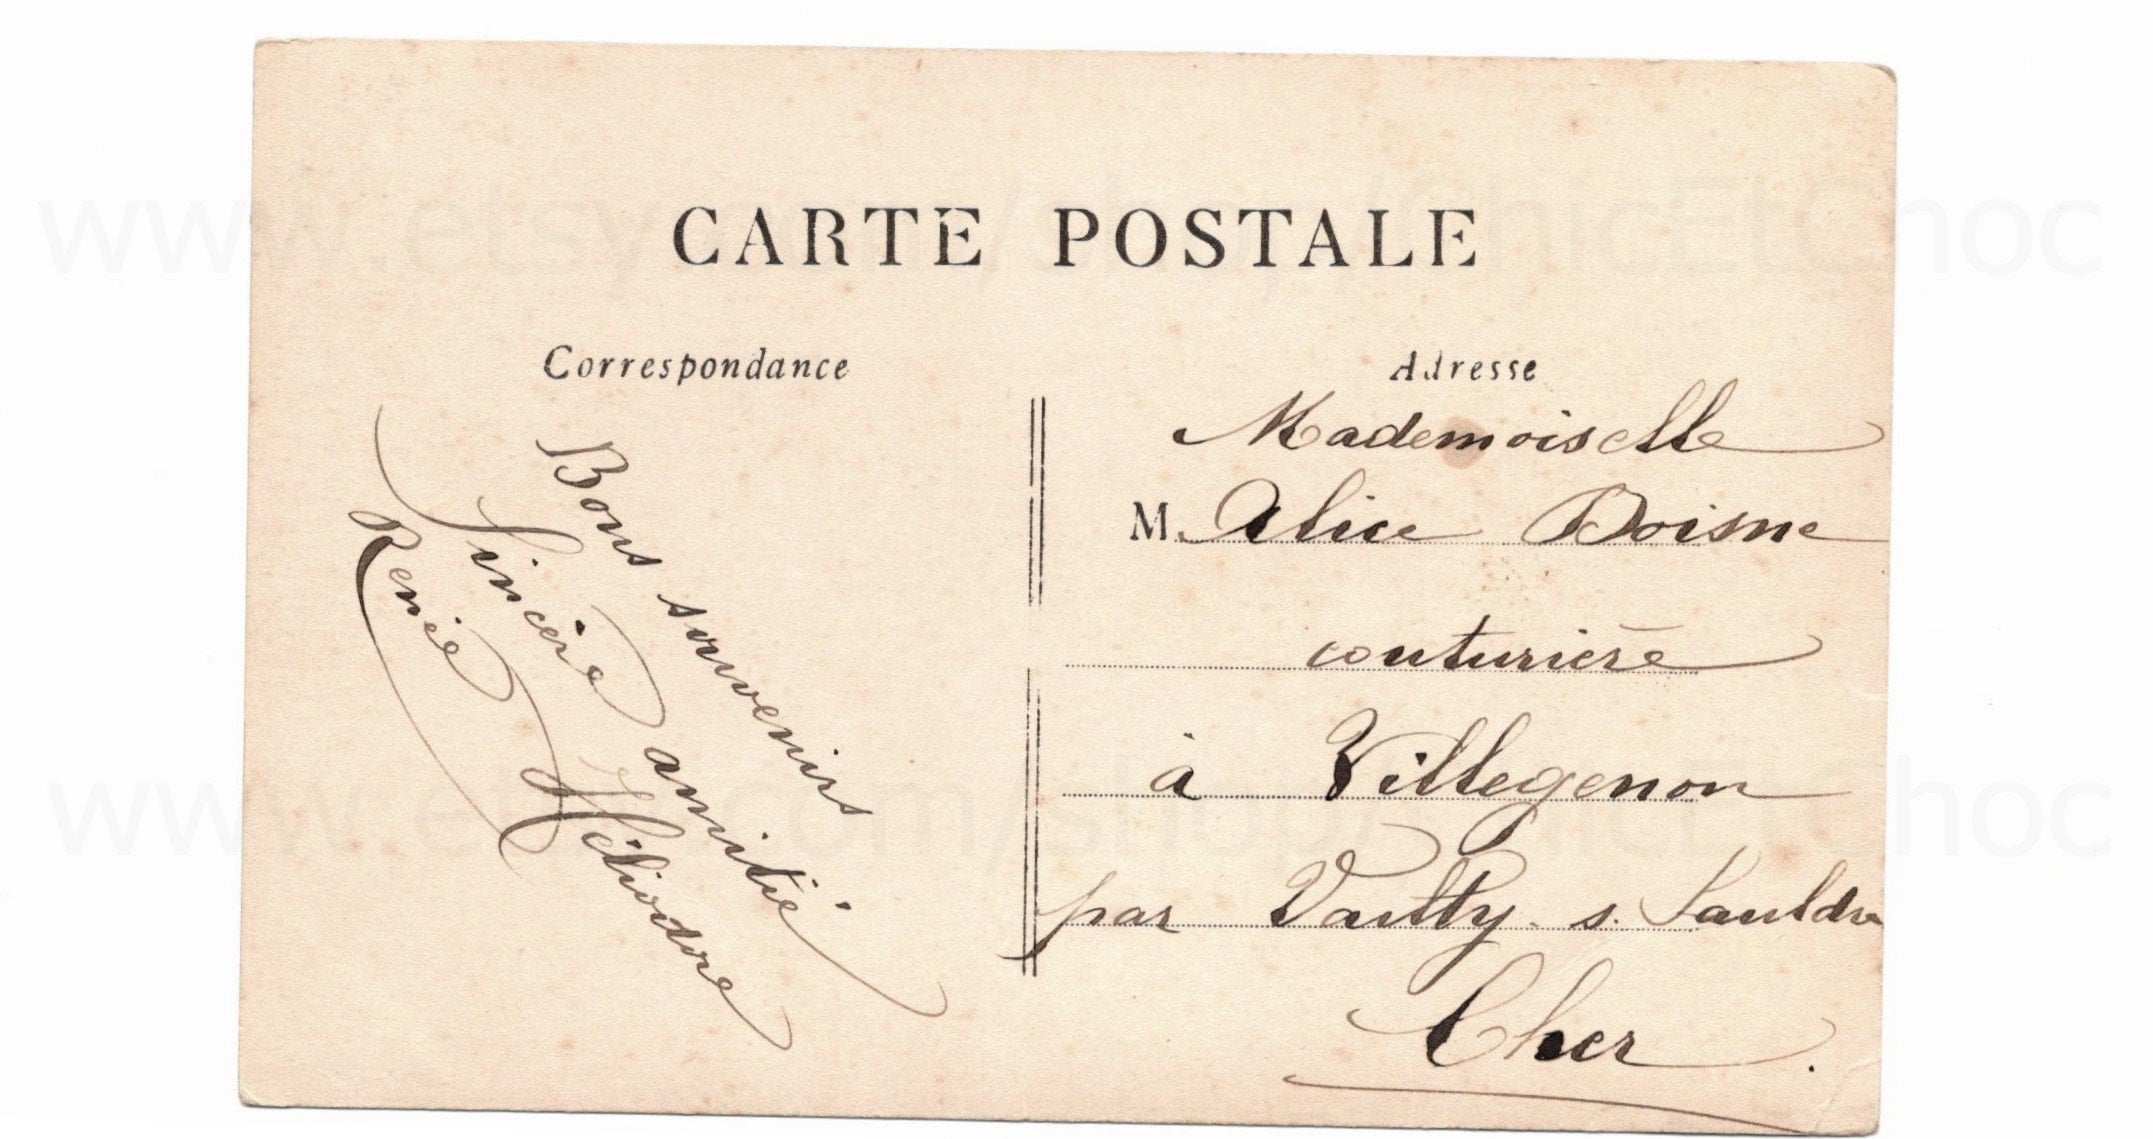 CARTE POSTALE
Correspondance
Bons souvenirs
Sincère amitié
Renée Héliodore
Adresse
Mademoiselle
M. Alice Boisne
couturière
à Villegenon
par Vailly s. Sauldre
Cher.
www.etsy.com/shop/ChicEtChoc
www.etsy.com/shop/ChicEtChoc